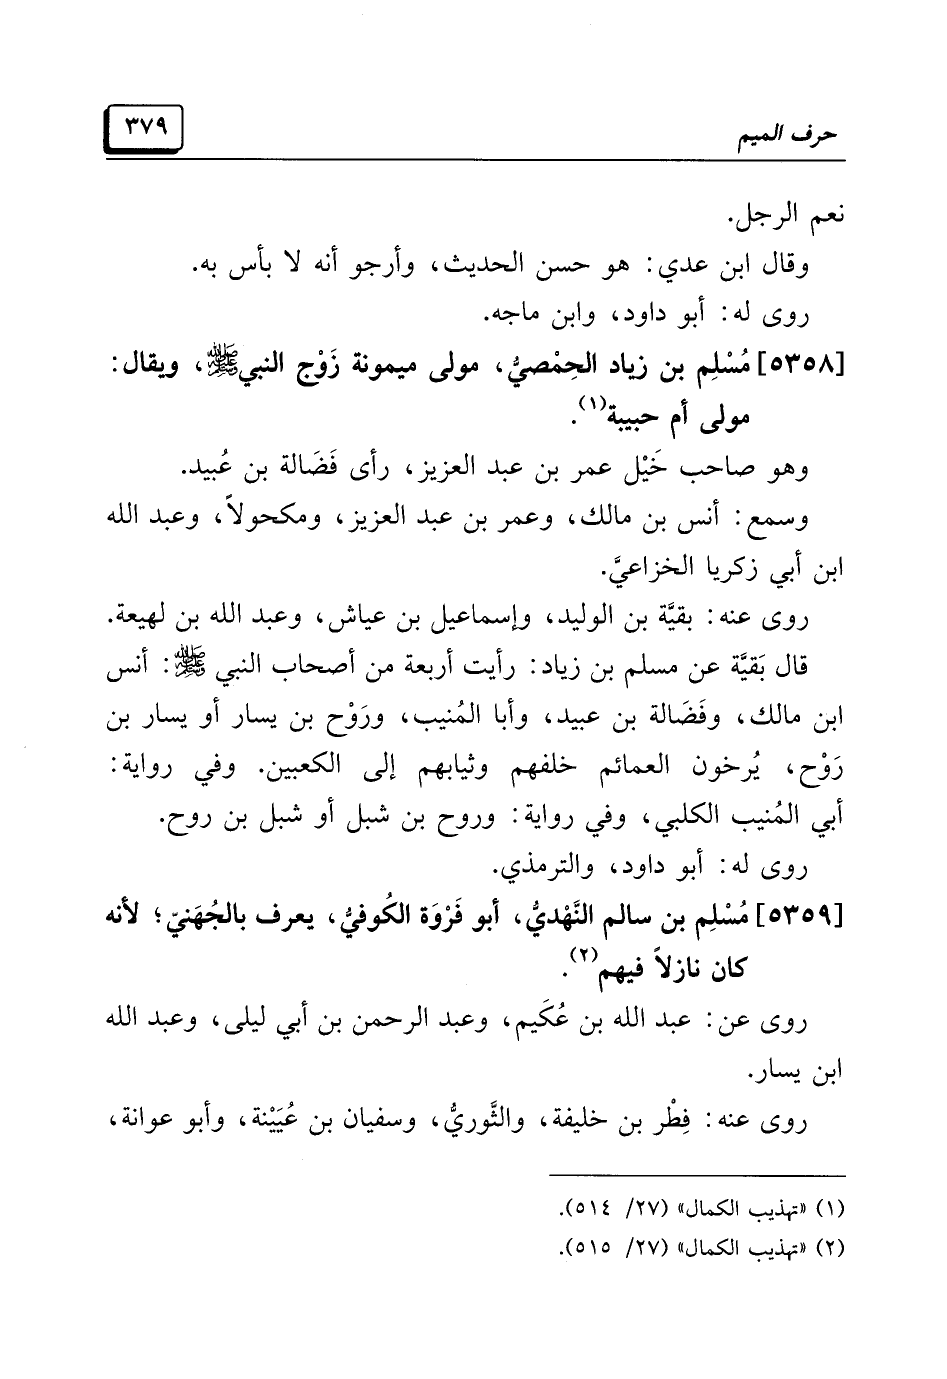 حرف الميم
٣٧٩
نعم الرجل.
وقال ابن عدي: هو حسن الحديث، وأرجو أنه لا بأس به.
روى له: أبو داود، وابن ماجه.
[٥٣٥٨] مُسْلِم بن زياد الحِمْصيُّ، مولى ميمونة زَوْج النبي ﷺ، ويقال:
مولى أم حبيبة(١).
وهو صاحب خَيْل عمر بن عبد العزيز، رأى فَضَالة بن عُبيد.
وسمع: أنس بن مالك، وعمر بن عبد العزيز، ومكحولاً، وعبد الله
ابن أبي زكريا الخزاعيَّ.
روى عنه: بقيَّة بن الوليد، وإسماعيل بن عياش، وعبد الله بن لهيعة.
قال بَقيَّة عن مسلم بن زياد: رأيت أربعة من أصحاب النبي ﷺ: أنس
ابن مالك، وفَضَالة بن عبيد، وأبا المُنيب، ورَوْح بن يسار أو يسار بن
رَوْح، يُرخون العمائم خلفهم وثيابهم إلى الكعبين. وفي رواية:
أبي المُنيب الكلبي، وفي رواية: وروح بن شبل أو شبل بن روح.
روى له: أبو داود، والترمذي.
[٥٣٥٩] مُسْلِم بن سالم النَّهْديُّ، أبو فَرْوَة الكُوفيُّ، يعرف بالجُهَنيّ؛ لأنه
كان نازلاً فيهم(٢).
روى عن: عبد الله بن عُكَيم، وعبد الرحمن بن أبي ليلى، وعبد الله
ابن يسار.
روى عنه: فِطْر بن خليفة، والثَّوريُّ، وسفيان بن عُيَيْنة، وأبو عوانة،
(١) «تهذيب الكمال» (٢٧/ ٥١٤).
(٢) «تهذيب الكمال» (٢٧/ ٥١٥).